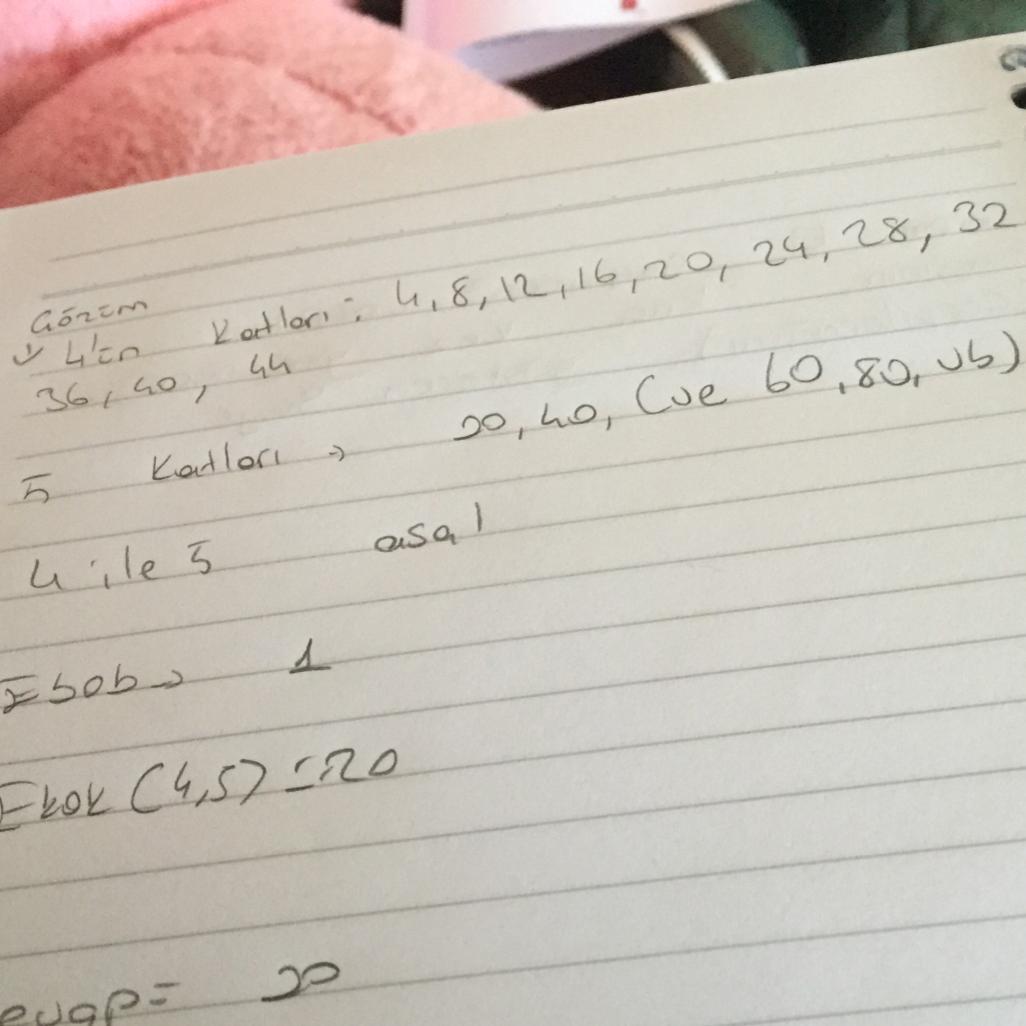 Çözüm
↓ 4'ün Katları: 4, 8, 12, 16, 20, 24, 28, 32
36, 40, 44
5 Katları → 20, 40, (ve 60, 80, vb)
4 ile 5 asal
Ebob → 1
Ekok (4,5) = 20
evap = 20